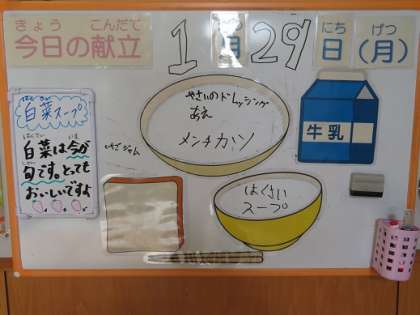 きょう こんだて
今日の献立
1月29日(月)
にち げつ
白菜スープ
白菜は今が
旬です。とっても
おいしいですよ
やさいのドレッシング
あえ
メンチカツ
牛乳
いちごジャム
はくさい
スープ